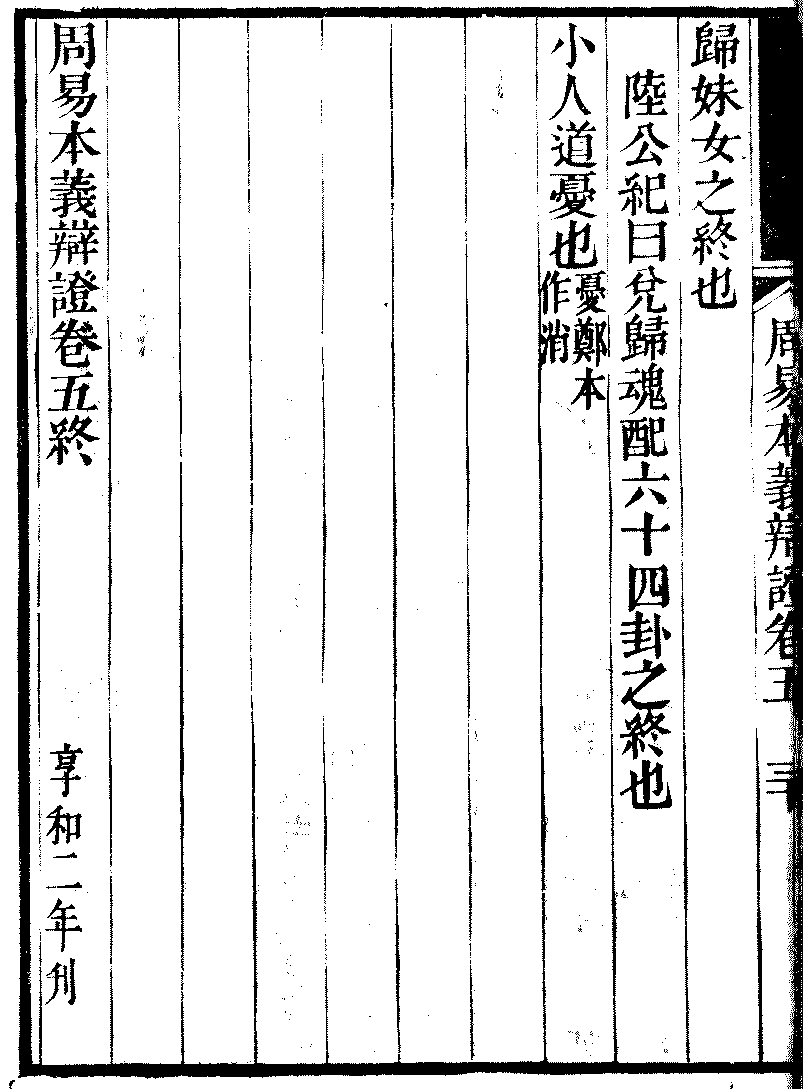 周易本義辯證卷五 三
歸妹女之終也
陸公紀曰兌歸魂配六十四卦之終也
小人道憂也憂鄭本作消
周易本義辯證卷五終
享和二年刋